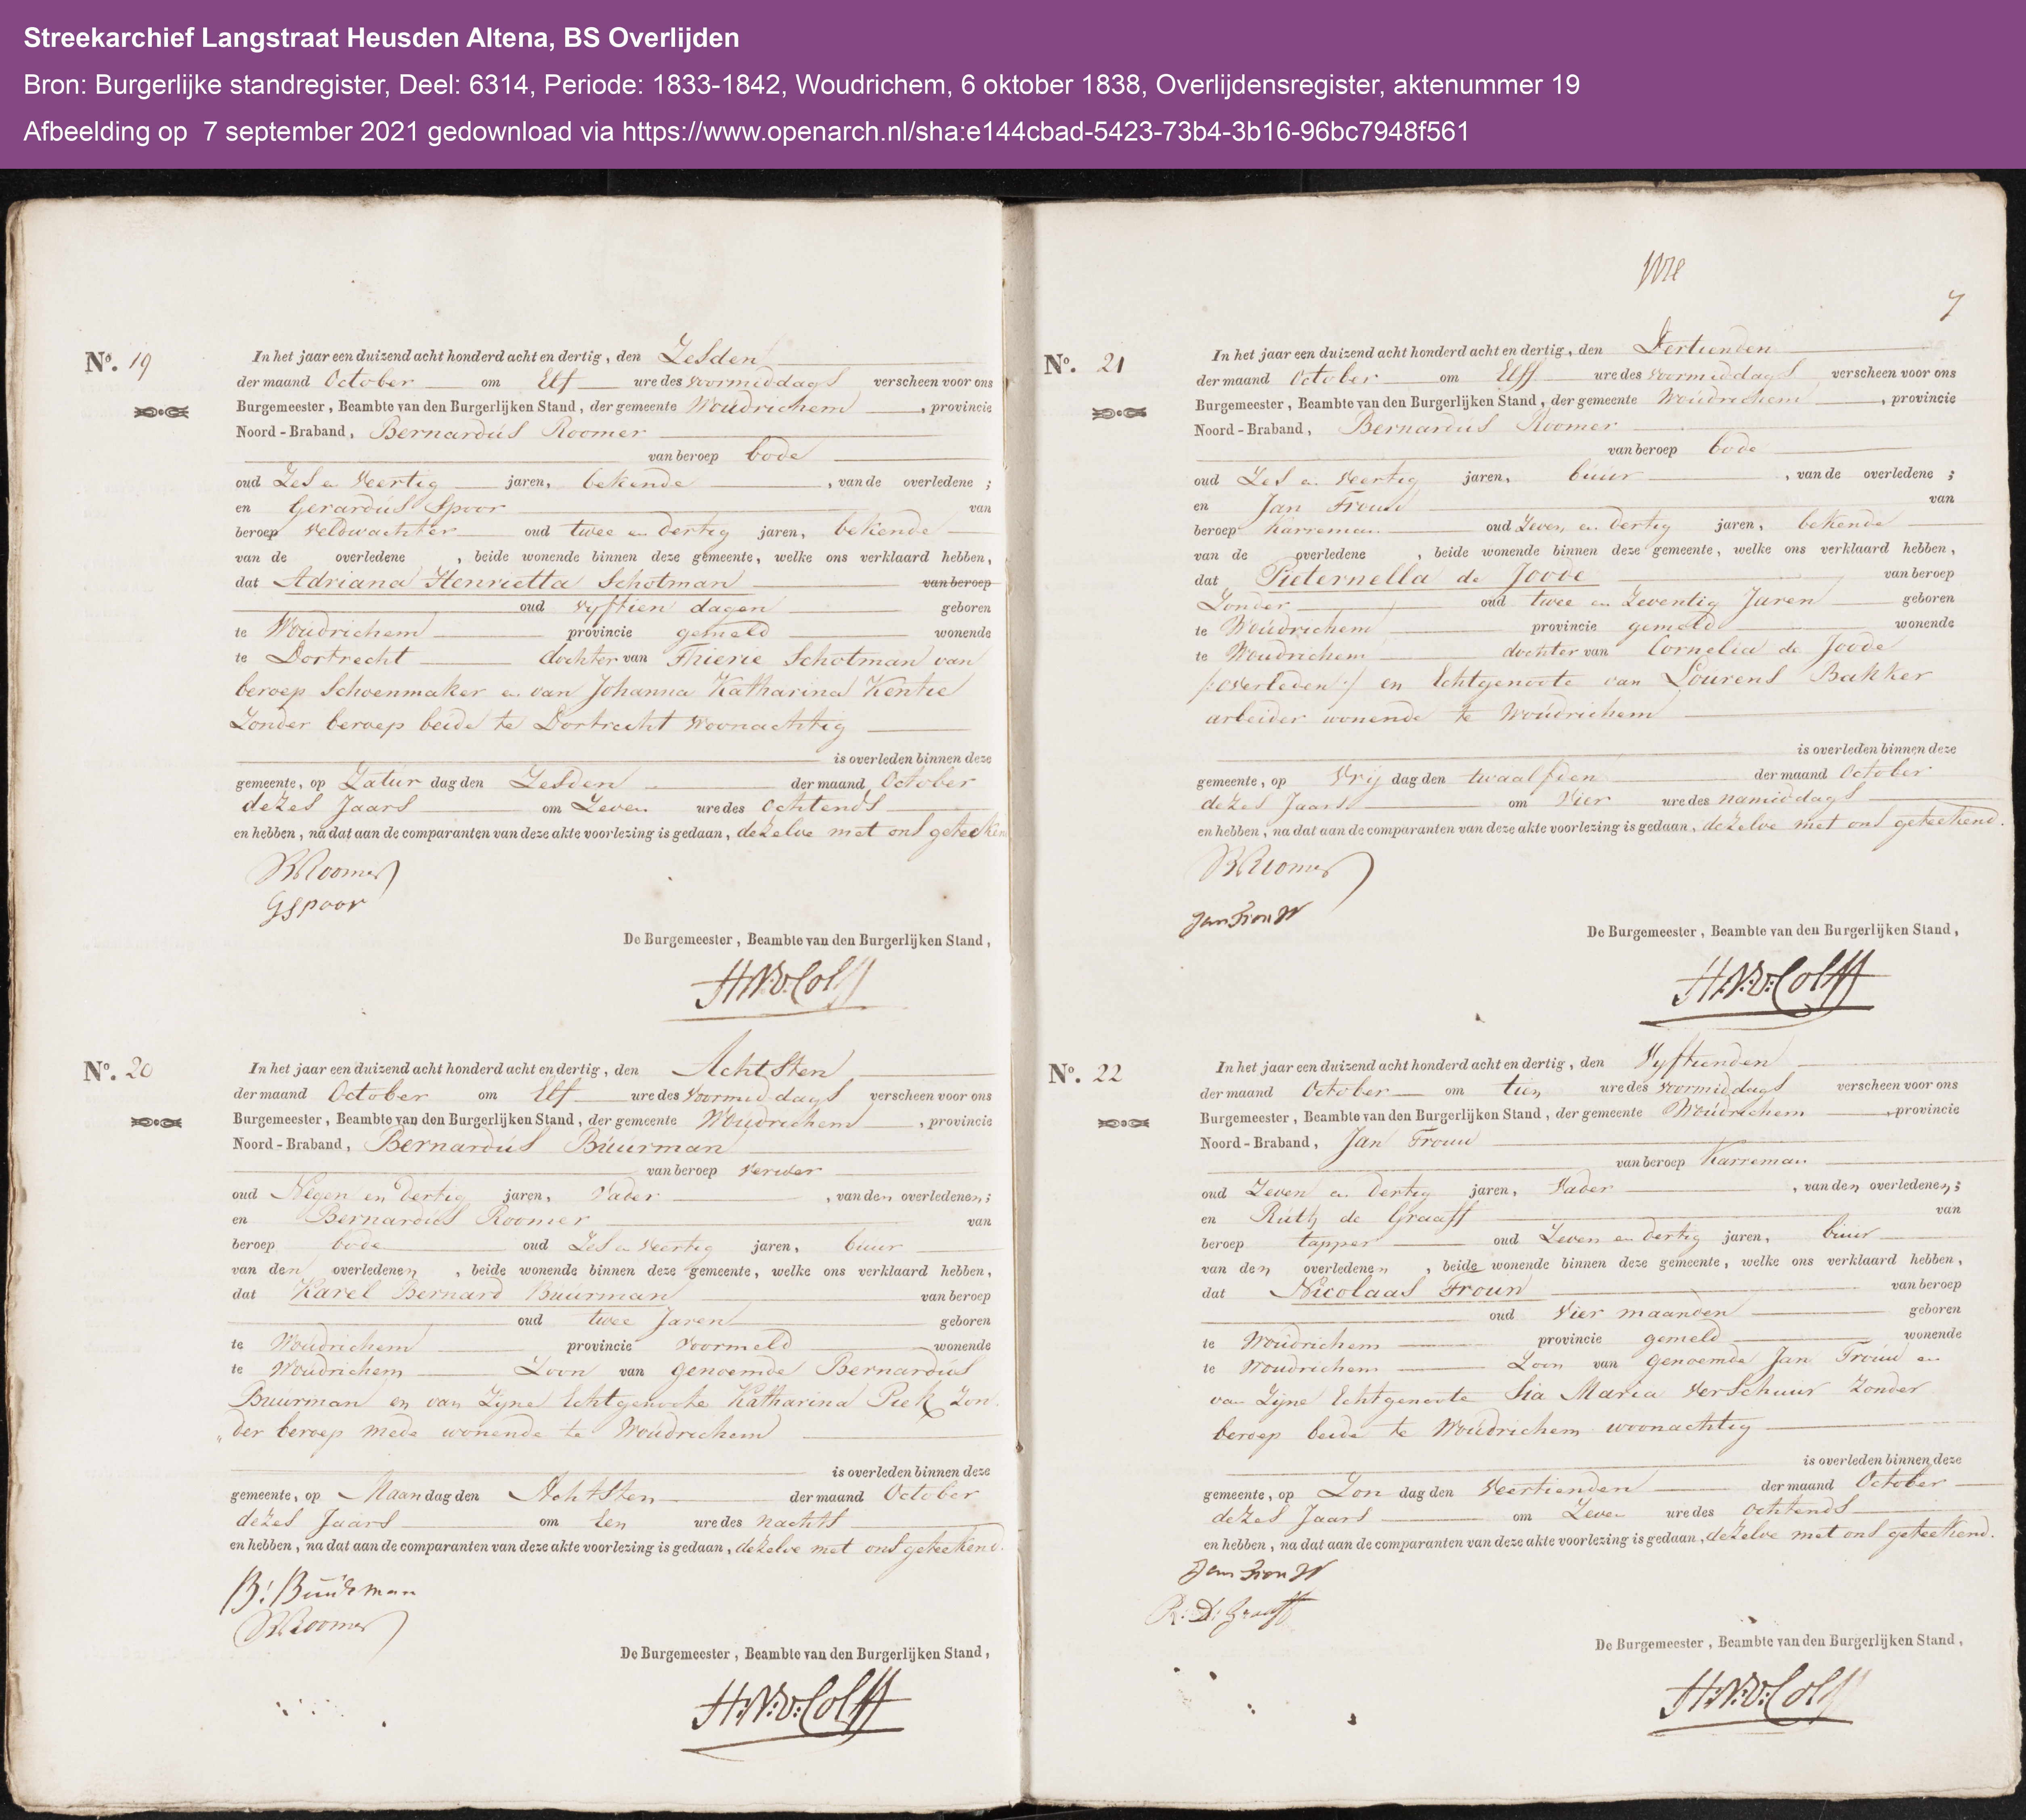 Streekarchief Langstraat Heusden Altena, BS Overlijden
Bron: Burgerlijke standregister, Deel: 6314, Periode: 1833-1842, Woudrichem, 6 oktober 1838, Overlijdensregister, aktenummer 19
Afbeelding op 7 september 2021 gedownload via https://www.openarch.nl/sha:e144cbad-5423-73b4-3b16-96bc7948f561
No. 19
In het jaar een duizend acht honderd acht en dertig, den Zesden
der maand October om Elf ure des voormiddags verscheen voor ons
Burgemeester, Beambte van den Burgerlijken Stand, der gemeente Woudrichem, provincie
Noord-Braband, Bernardus Roomer
van beroep bode
oud Zes en Veertig jaren, bekende, van de overledene;
en Gerardus Spoor van
beroep Veldwachter oud twee en dertig jaren, bekende
van de overledene, beide wonende binnen deze gemeente, welke ons verklaard hebben,
dat Adriana Henrietta Schotman van beroep
oud vyftien dagen geboren
te Woudrichem provincie gemeld wonende
te Dortrecht dochter van Thierie Schotman van
beroep Schoenmaker en van Johanna Katharina Kentie
Zonder beroep beide te Dortrecht woonachtig
is overleden binnen deze
gemeente, op Zatur dag den Zesden der maand October
dezes Jaars om Zeven ure des ochtends
en hebben, na dat aan de comparanten van deze akte voorlezing is gedaan, dezelve met ons geteeken
BRoomer
GSpoor
De Burgemeester, Beambte van den Burgerlijken Stand,
No. 20
In het jaar een duizend acht honderd acht en dertig, den Achtsten
der maand October om Elf ure des Voormiddags verscheen voor ons
Burgemeester, Beambte van den Burgerlijken Stand, der gemeente Woudrichem, provincie
Noord-Braband, Bernardus Buurman
van beroep Verwer
oud Negen en dertig jaren, Vader, van den overledenen;
en Bernardus Roomer van
beroep bode oud Zes en Veertig jaren, buur
van den overledenen, beide wonende binnen deze gemeente, welke ons verklaard hebben,
dat Karel Bernard Buurman van beroep
oud twee Jaren geboren
te Woudrichem provincie Voormeld wonende
te Woudrichem Zoon van genoemde Bernardus
Buurman en van Zyne Echtgenoote Katharina Piek Zon
„der beroep mede wonende te Woudrichem
is overleden binnen deze
gemeente, op Maan dag den Achtsten der maand October
dezes Jaars om Een ure des nachts
en hebben, na dat aan de comparanten van deze akte voorlezing is gedaan, dezelve met ons geteekend.
B: Buurman
BRoomer
De Burgemeester, Beambte van den Burgerlijken Stand,
7
No. 21
In het jaar een duizend acht honderd acht en dertig, den Dertienden
der maand October om Elff ure des Voormiddags verscheen voor ons
Burgemeester, Beambte van den Burgerlijken Stand, der gemeente Woudrichem, provincie
Noord-Braband, Bernardus Roomer
van beroep bode
oud Zes en Veertig jaren, buur, van de overledene;
en Jan Frouw van
beroep Karreman oud Zeven en dertig jaren, bekende
van de overledene, beide wonende binnen deze gemeente, welke ons verklaard hebben,
dat Pieternella de Joode van beroep
Zonder oud twee en Zeventig Jaren geboren
te Woudrichem provincie gemeld wonende
te Woudrichem dochter van Cornelia de Joode
/:overleden:/ en Echtgenoote van Lourens Bakker
arbeider wonende te Woudrichem
is overleden binnen deze
gemeente, op Vrij dag den twaalfden der maand October
dezes Jaars om Vier ure des namiddags
en hebben, na dat aan de comparanten van deze akte voorlezing is gedaan, dezelve met ons geteekend.
BRoomer
De Burgemeester, Beambte van den Burgerlijken Stand,
No. 22
In het jaar een duizend acht honderd acht en dertig, den Vyftienden
der maand October om tien ure des voormiddags verscheen voor ons
Burgemeester, Beambte van den Burgerlijken Stand, der gemeente Woudrichem, provincie
Noord-Braband, Jan Frouw
van beroep Karreman
oud Zeven en dertig jaren, Vader, van den overledenen;
en Ruth de Graaff van
beroep tapper oud Zeven en dertig jaren, buur
van den overledenen, beide wonende binnen deze gemeente, welke ons verklaard hebben,
dat Nicolaas Frouw van beroep
oud Vier maanden geboren
te Woudrichem provincie gemeld wonende
te Woudrichem Zoon van genoemde Jan Frouw en
van Zyne Echtgenoote Sia Maria VerSchuur Zonder
beroep beide te Woudrichem woonachtig
is overleden binnen deze
gemeente, op Zon dag den Veertienden der maand October
dezes Jaars om Zeven ure des ochtends
en hebben, na dat aan de comparanten van deze akte voorlezing is gedaan, dezelve met ons geteekend.
R: D: Graaff
De Burgemeester, Beambte van den Burgerlijken Stand,